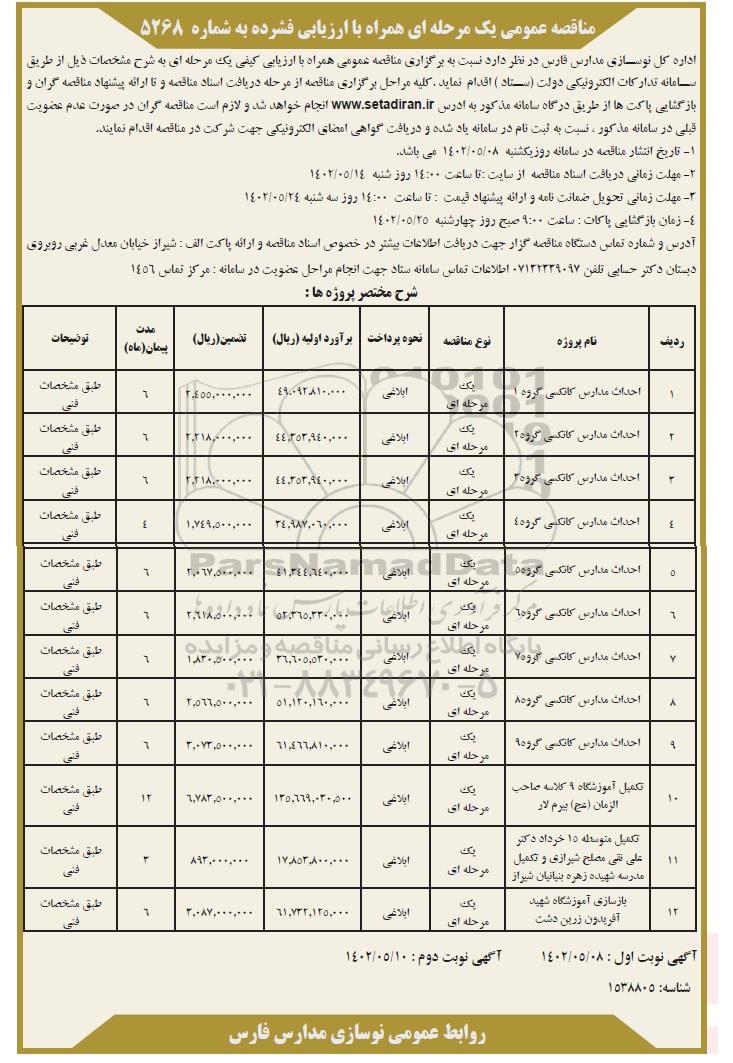 مناقصه عمومی یک مرحله ای همراه با ارزیابی فشرده به شماره ۵۲۶۸
اداره کل نوسازی مدارس فارس در نظر دارد نسبت به برگزاری مناقصه عمومی همراه با ارزیابی کیفی یک مرحله ای به شرح مشخصات ذیل از طریق
سامانه تدارکات الکترونیکی دولت (ستاد ) اقدام نماید .کلیه مراحل برگزاری مناقصه از مرحله دریافت اسناد مناقصه و تا ارائه پیشنهاد مناقصه گران و
بازگشایی پاکت ها از طریق درگاه سامانه مذکور به ادرس www.setadiran.ir انجام خواهد شد و لازم است مناقصه گران در صورت عدم عضویت
قبلی در سامانه مذکور ، نسبت به ثبت نام در سامانه یاد شده و دریافت گواهی امضای الکترونیکی جهت شرکت در مناقصه اقدام نمایند.
۱- تاریخ انتشار مناقصه در سامانه روزیکشنبه ۱۴۰۲/۰۵/۰۸ می باشد.
۲- مهلت زمانی دریافت اسناد مناقصه از سایت :تا ساعت ۱۴:۰۰ روز شنبه ۱۴۰۲/۰۵/۱۴
۳- مهلت زمانی تحویل ضمانت نامه و ارائه پیشنهاد قیمت : تا ساعت ۱۴:۰۰ روز سه شنبه ۱۴۰۲/۰۵/۲۴
۴- زمان بازگشایی پاکات : ساعت ۹:۰۰ صبح روز چهارشنبه ۱۴۰۲/۰۵/۲۵
آدرس و شماره تماس دستگاه مناقصه گزار جهت دریافت اطلاعات بیشتر در خصوص اسناد مناقصه و ارائه پاکت الف : شیراز خیابان معدل غربی روبروی
دبستان دکتر حسابی تلفن ۰۷۱۳۲۳۳۹۰۹۷ اطلاعات تماس سامانه ستاد جهت انجام مراحل عضویت در سامانه : مرکز تماس ۱۴۵۶
شرح مختصر پروژه ها :
ردیف نام پروژه نوع مناقصه نحوه پرداخت برآورد اولیه (ریال) تضمین(ریال) مدت پیمان(ماه) توضیحات
۱ احداث مدارس کانکسی گروه ۱ یک مرحله ای ابلاغی ۴۹،۰۹۲،۸۱۰،۰۰۰ ۲,۴۵۵,۰۰۰,۰۰۰ ۶ طبق مشخصات فنی
۲ احداث مدارس کانکسی گروه۲ یک مرحله ای ابلاغی ۴۴,۳۵۳,۹۴۰,۰۰۰ ۲,۲۱۸,۰۰۰,۰۰۰ ۶ طبق مشخصات فنی
۳ احداث مدارس کانکسی گروه۳ یک مرحله ای ابلاغی ۴۴,۳۵۳,۹۴۰,۰۰۰ ۲,۲۱۸,۰۰۰,۰۰۰ ۶ طبق مشخصات فنی
۴ احداث مدارس کانکسی گروه۴ یک مرحله ای ابلاغی ۳۴,۹۸۷,۰۶۰,۰۰۰ ۱,۷۴۹,۵۰۰,۰۰۰ ۴ طبق مشخصات فنی
۵ احداث مدارس کانکسی گروه۵ یک مرحله ای ابلاغی ۴۱,۳۴۴,۶۴۰,۰۰۰ ۲,۰۶۷,۵۰۰,۰۰۰ ۶ طبق مشخصات فنی
۶ احداث مدارس کانکسی گروه۶ یک مرحله ای ابلاغی ۵۲,۳۶۵,۳۳۰,۰۰۰ ۲,۶۱۸,۵۰۰,۰۰۰ ۶ طبق مشخصات فنی
۷ احداث مدارس کانکسی گروه۷ یک مرحله ای ابلاغی ۳۶,۶۰۵,۵۳۰,۰۰۰ ۱,۸۳۰,۵۰۰,۰۰۰ ۶ طبق مشخصات فنی
۸ احداث مدارس کانکسی گروه۸ یک مرحله ای ابلاغی ۵۱,۱۲۰,۱۶۰,۰۰۰ ۲,۵۶۶,۵۰۰,۰۰۰ ۶ طبق مشخصات فنی
۹ احداث مدارس کانکسی گروه۹ یک مرحله ای ابلاغی ۶۱,۴۶۶,۸۱۰,۰۰۰ ۳,۰۷۳,۵۰۰,۰۰۰ ۶ طبق مشخصات فنی
۱۰ تکمیل آموزشگاه ۹ کلاسه صاحب الزمان (عج) بیرم لار یک مرحله ای ابلاغی ۱۳۵,۶۶۹,۰۳۰,۵۰۰ ۶,۷۸۳,۵۰۰,۰۰۰ ۱۲ طبق مشخصات فنی
۱۱ تکمیل متوسطه ۱۵ خرداد دکتر علی نقی مصلح شیرازی و تکمیل مدرسه شهیده زهره بنیانیان شیراز یک مرحله ای ابلاغی ۱۷,۸۵۳,۸۰۰,۰۰۰ ۸۹۳,۰۰۰,۰۰۰ ۳ طبق مشخصات فنی
۱۲ بازسازی آموزشگاه شهید آفریدون زرین دشت یک مرحله ای ابلاغی ۶۱,۷۳۲,۱۲۵,۰۰۰ ۳,۰۸۷,۰۰۰,۰۰۰ ۶ طبق مشخصات فنی
ParsNamadData
مرکز فرآوری اطلاعات پارس نماد داده ها
پایگاه اطلاع رسانی مناقصه و مزایده
۰۲۱-۸۸۳۴۹۶۷۰-۵
آگهی نوبت اول : ۱۴۰۲/۰۵/۰۸ آگهی نوبت دوم : ۱۴۰۲/۰۵/۱۰
شناسه: ۱۵۳۸۸۰۵
روابط عمومی نوسازی مدارس فارس